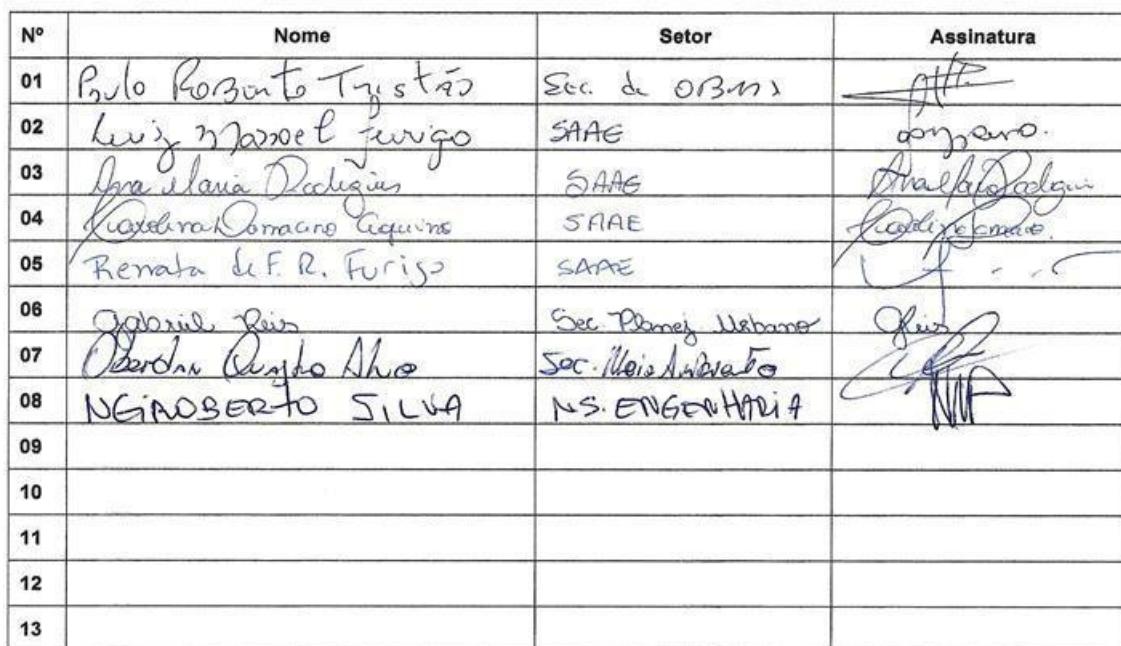 Nº Nome Setor Assinatura
01 Paulo Roberto Tristão Sec. de OBRAS
02 Luiz Manoel Furigo SAAE
03 Ana Maria Rodrigues SAAE Ana Maria Rodrigues
04 Carolina Damaceno Aquino SAAE
05 Renata de F. R. Furigo SAAE
06 Gabriel Reis Sec. Planej. Urbano GReis
07 Oberdan Alves Sec. Meio Ambiente
08 NEIROBERTO SILVA NS. ENGENHARIA
09
10
11
12
13